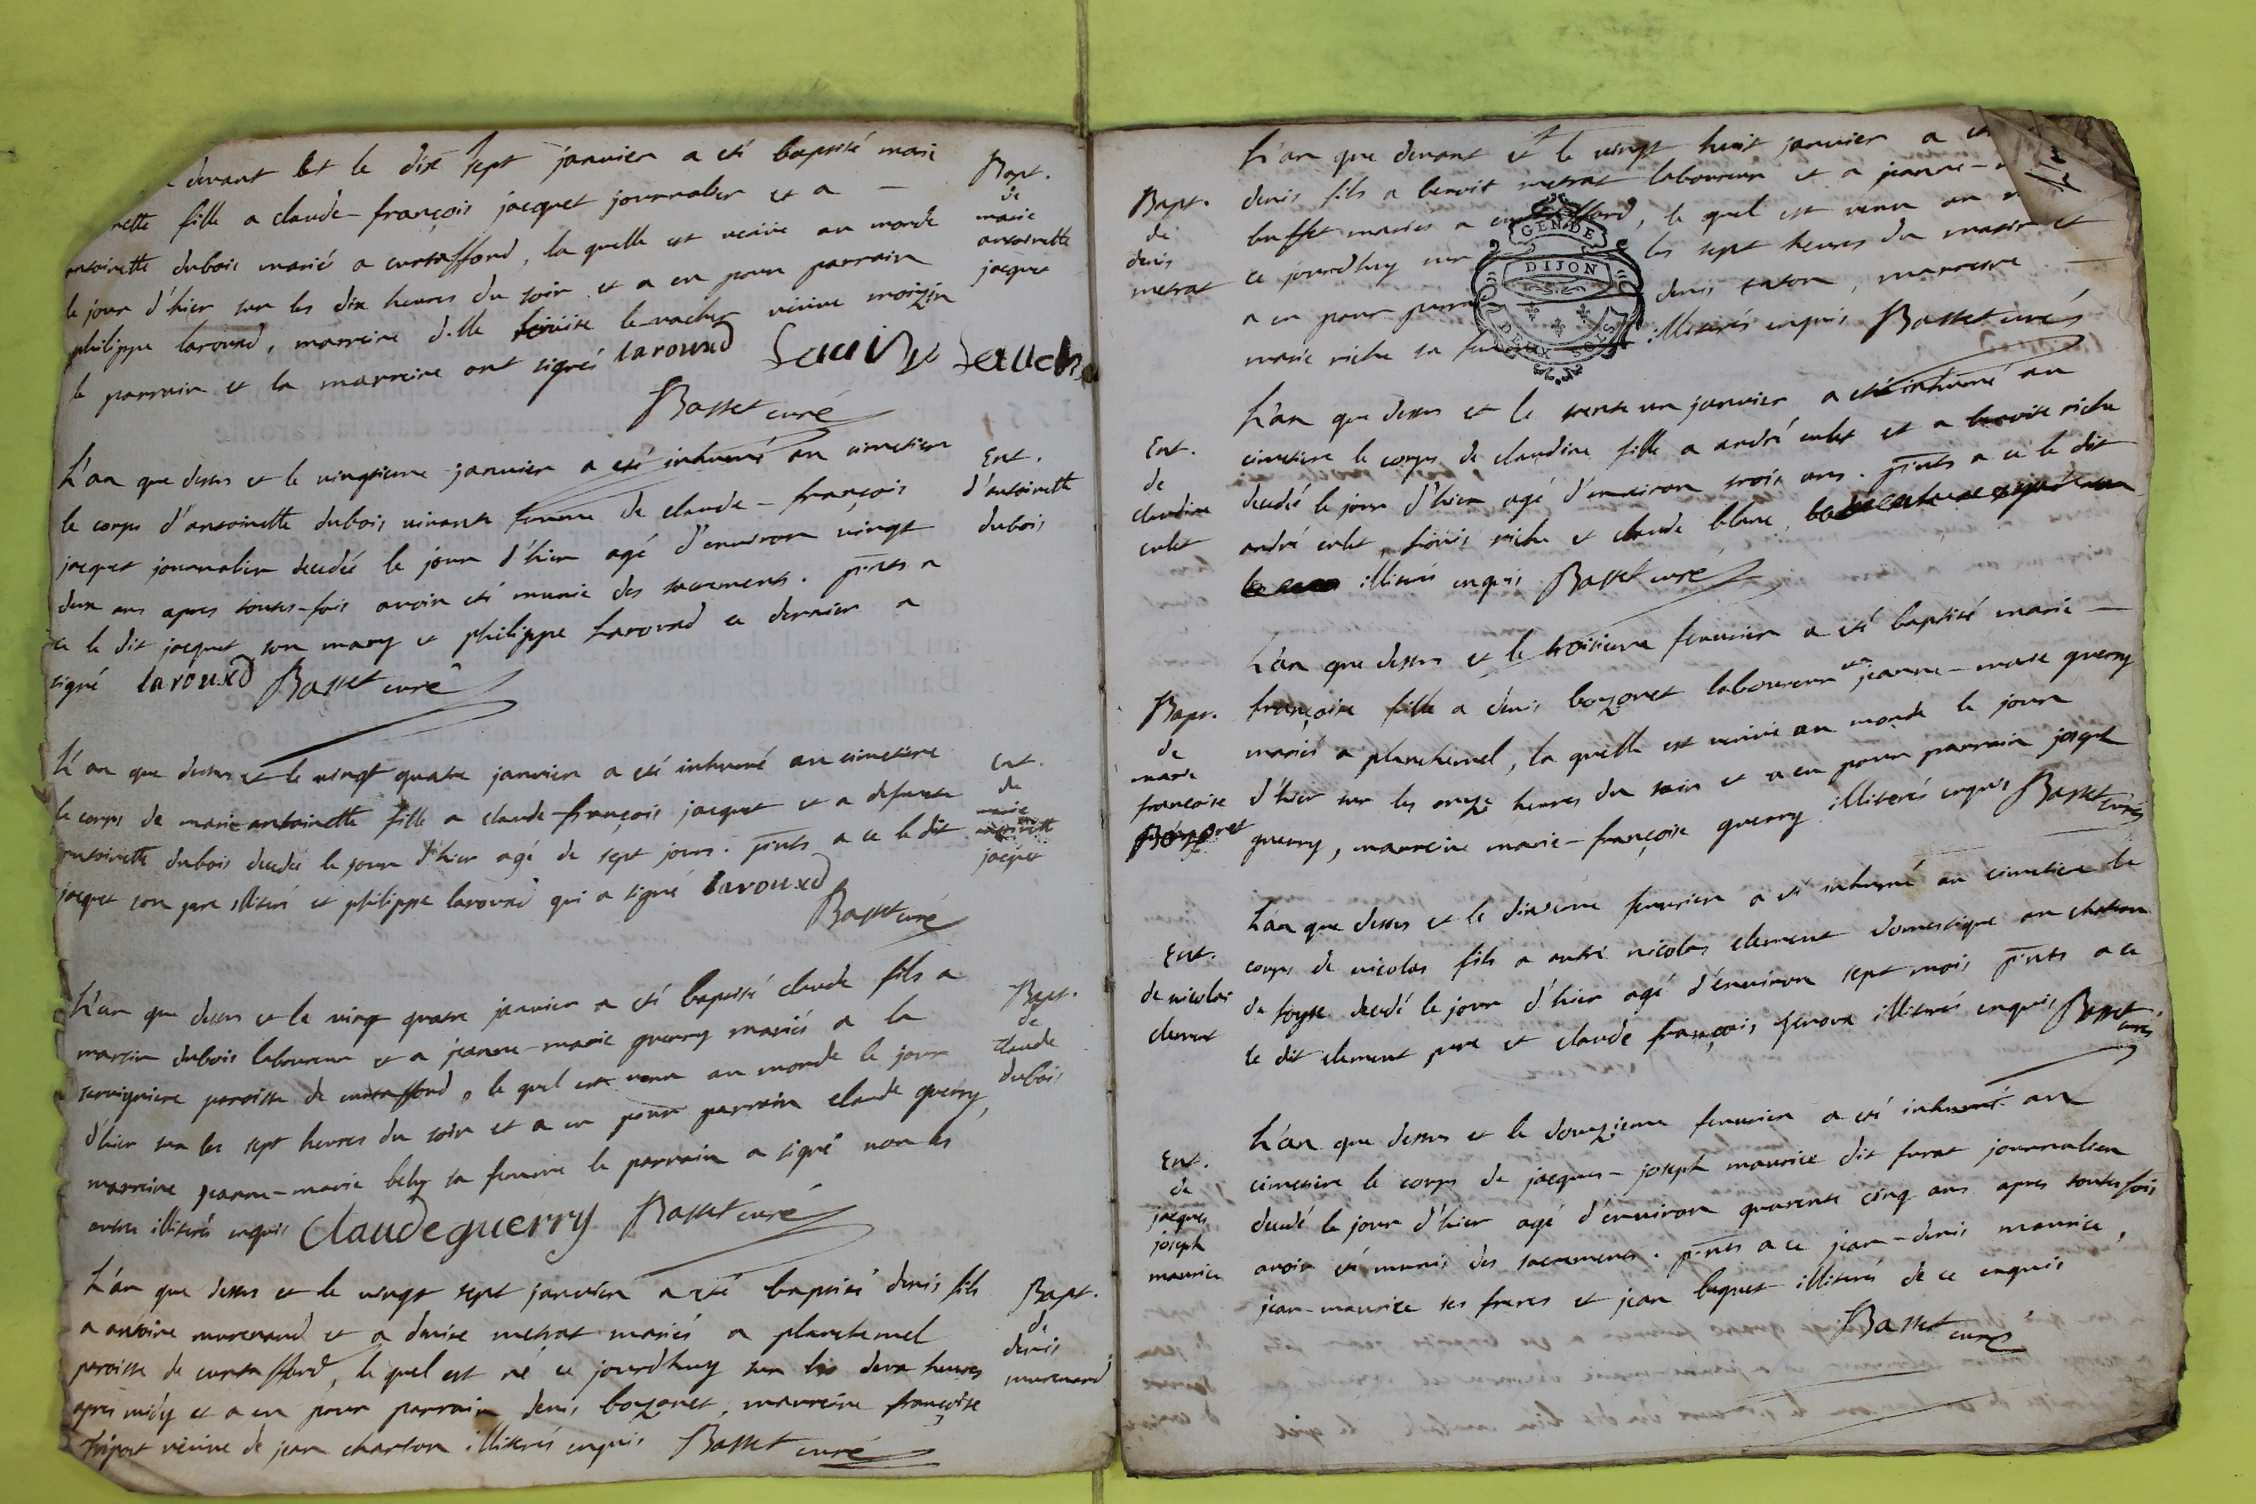 devant et le dix sept janvier a eté baptisé marie
fille a claude-françois jacquet journalier et a
antoinette dubois mariés a curtaffond, la quelle est venüe au monde
le jour d'hier sur les dix heures du soir et a eu pour parrain
philippe larouxd, marreine d.lle loüise le vacher veuve
le parrain et la marreine ont signés larouxd
Basset curé
Bapt.
de
marie
antoinette
jacquet
L'an que dessus et le vingtieme janvier a eté inhumé au cimetiere
le corps d'antoinette dubois vivante femme de claude-françois
jacquet journalier decedée le jour d'hier agé d'environ vingt
deux ans apres toutes-fois avoir eté munie des sacrements. pñts a
ce le dit jacquet son mary et philippe larouxd ce dernier a
signé larouxd Basset curé
Ent.
d'antoinette
dubois
L'an que dessus et le vingt quatre janvier a eté inhumé au cimetiere
le corps de marie antoinette fille a claude-françois jacquet et a defunte
antoinette dubois decedée le jour d'hier agé de sept jours. pñts a ce le dit
jacquet son pere illiteré et philippe larouxd qui a signé larouxd
Basset curé
Ent.
de
marie
antoinette
jacquet
L'an que dessus et le vingt quatre janvier a eté baptisé claude fils a
martin dubois laboureur et a jeanne-marie guerry mariés a la
servigniere paroisse de curtaffond, le quel est venu au monde le jour
d'hier sur les sept heures du soir et a eu pour parrain claude guerry,
marreine jeanne-marie bely sa femme le parrain a signé non les
autres illiterés enquis Claude guerry Basset curé
Bapt.
de
claude
dubois
L'an que dessus et le vingt sept janvier a eté baptisé denis fils
a antoine murenand et a denise metrat mariés a planchemel
paroisse de curtaffond, le quel est né ce jourdhuy sur les deux heures
apres midy et a eu pour parrain denis bozonet, marreine françoise
veüve de jean charton illiterés enquis Basset curé
Bapt.
de
denis
murenand
L'an que devant et le vingt huit janvier a eté
denis fils a benoit metrat laboureur et a jeanne-
buffet mariés a curtaffond, le quel est venu au
ce jourdhuy sur les sept heures du matin et
a eu pour parrain denis taton, marreine
marie riche sa femme illiterés enquis Basset curé
Bapt.
de
denis
metrat
GEN DE
DIJON
DEUX SOLS
L'an que dessus et le trente un janvier a eté inhumé au
cimetiere le corps de claudine fille a andré culet et a benoite riche
decedée le jour d'hier agé d'environ trois ans. pñts a ce le dit
andré culet, loüis riche et claude blanc,
illiterés enquis Basset curé
Ent.
de
claudine
culet
L'an que dessus et le troisieme fevrier a eté baptisé marie
françoise fille a denis bozonet laboureur et a jeanne-marie guerry
mariés a planchemel, la quelle est venüe au monde le jour
d'hier sur les onze heures du soir et a eu pour parrain joseph
guerry, marreine marie-françoise guerry illiterés enquis Basset curé
Bapt.
de
marie
françoise
Bozonet
L'an que dessus et le dixieme fevrier a eté inhumé au cimetiere le
corps de nicolas fils a autre nicolas clement domestique au chateau
de loyse decedé le jour d'hier agé d'environ sept mois pñts a ce
le dit clement pere et claude françois illiterés enquis Basset curé
Ent.
de nicolas
clement
L'an que dessus et le douzieme fevrier a eté inhumé au
cimetiere le corps de jacques-joseph maurice dit furat journalier
decedé le jour d'hier agé d'environ quarente cinq ans apres toutesfois
avoir eté munis des sacrements. pñts a ce jean-denis maurice,
jean-maurice ses freres et jean buguet illiterés de ce enquis
Basset curé
Ent.
de
jacques
joseph
maurice